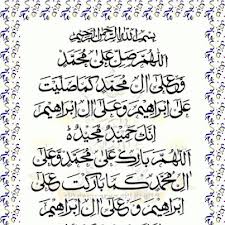 بسم الله الرحمن الرحيم
اللهم صل على محمد
وعلى ال محمد كما صليت
على ابراهيم وعلى ال ابراهيم
انك حميد مجيد
اللهم بارك على محمد وعلى
ال محمد كما باركت على
ابراهيم وعلى ال ابراهيم